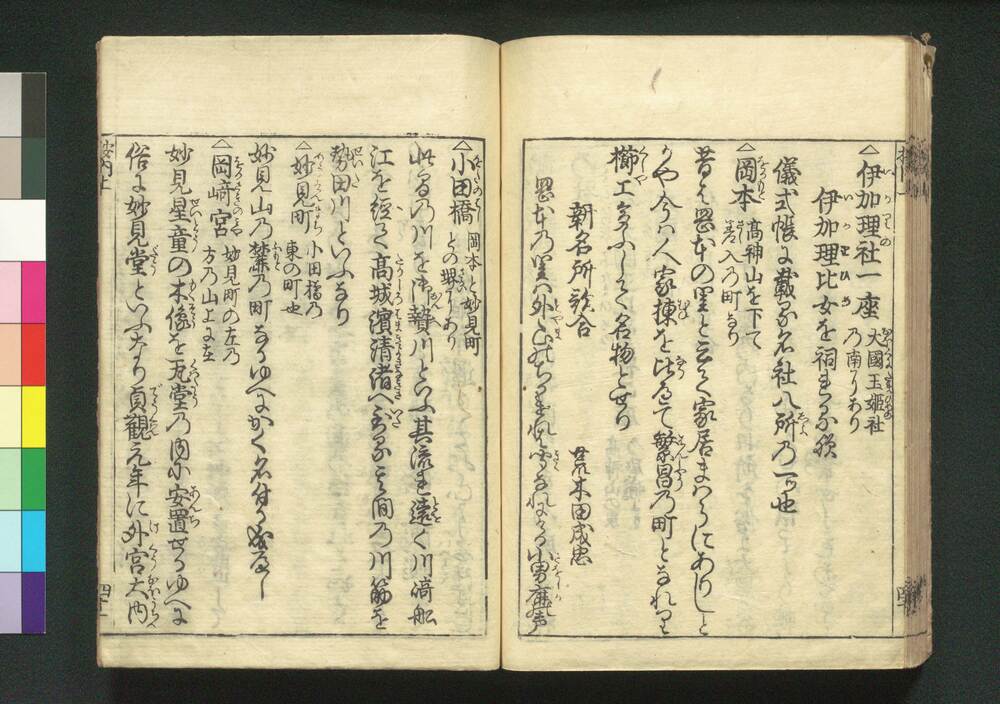 △伊加理社一座 大國玉姫社
乃南にあり
伊加理比女を祠まつる
儀式帳に載る名社八所乃一ッ也
△岡本 髙神山を下て
乃町なり
昔は岡本の里と云て家居まはらにありしと
かや今は人家棟を比へて繁昌乃町となれり
櫛工多ふして名物とせり
新名所歌合
荒木田成忠
岡本乃里は外山のちかけれは
小男鹿声
△小田橋 岡本と妙見町
との堺にあり
此る乃川を御贄川といふ其流は遠く川崎舩
江を経て髙城濱清渚へ至る其間乃川筋を
勢田川といふなり
△妙見町 小田橋乃
東の町也
妙見山乃麓乃町なるゆへにかく名付る成へし
△岡﨑宮 妙見町の左乃
方乃山上に在
妙見星童の木像を瓦堂乃内に安置せるゆへに
俗に妙見堂といふなり貞観元年に外宮大内